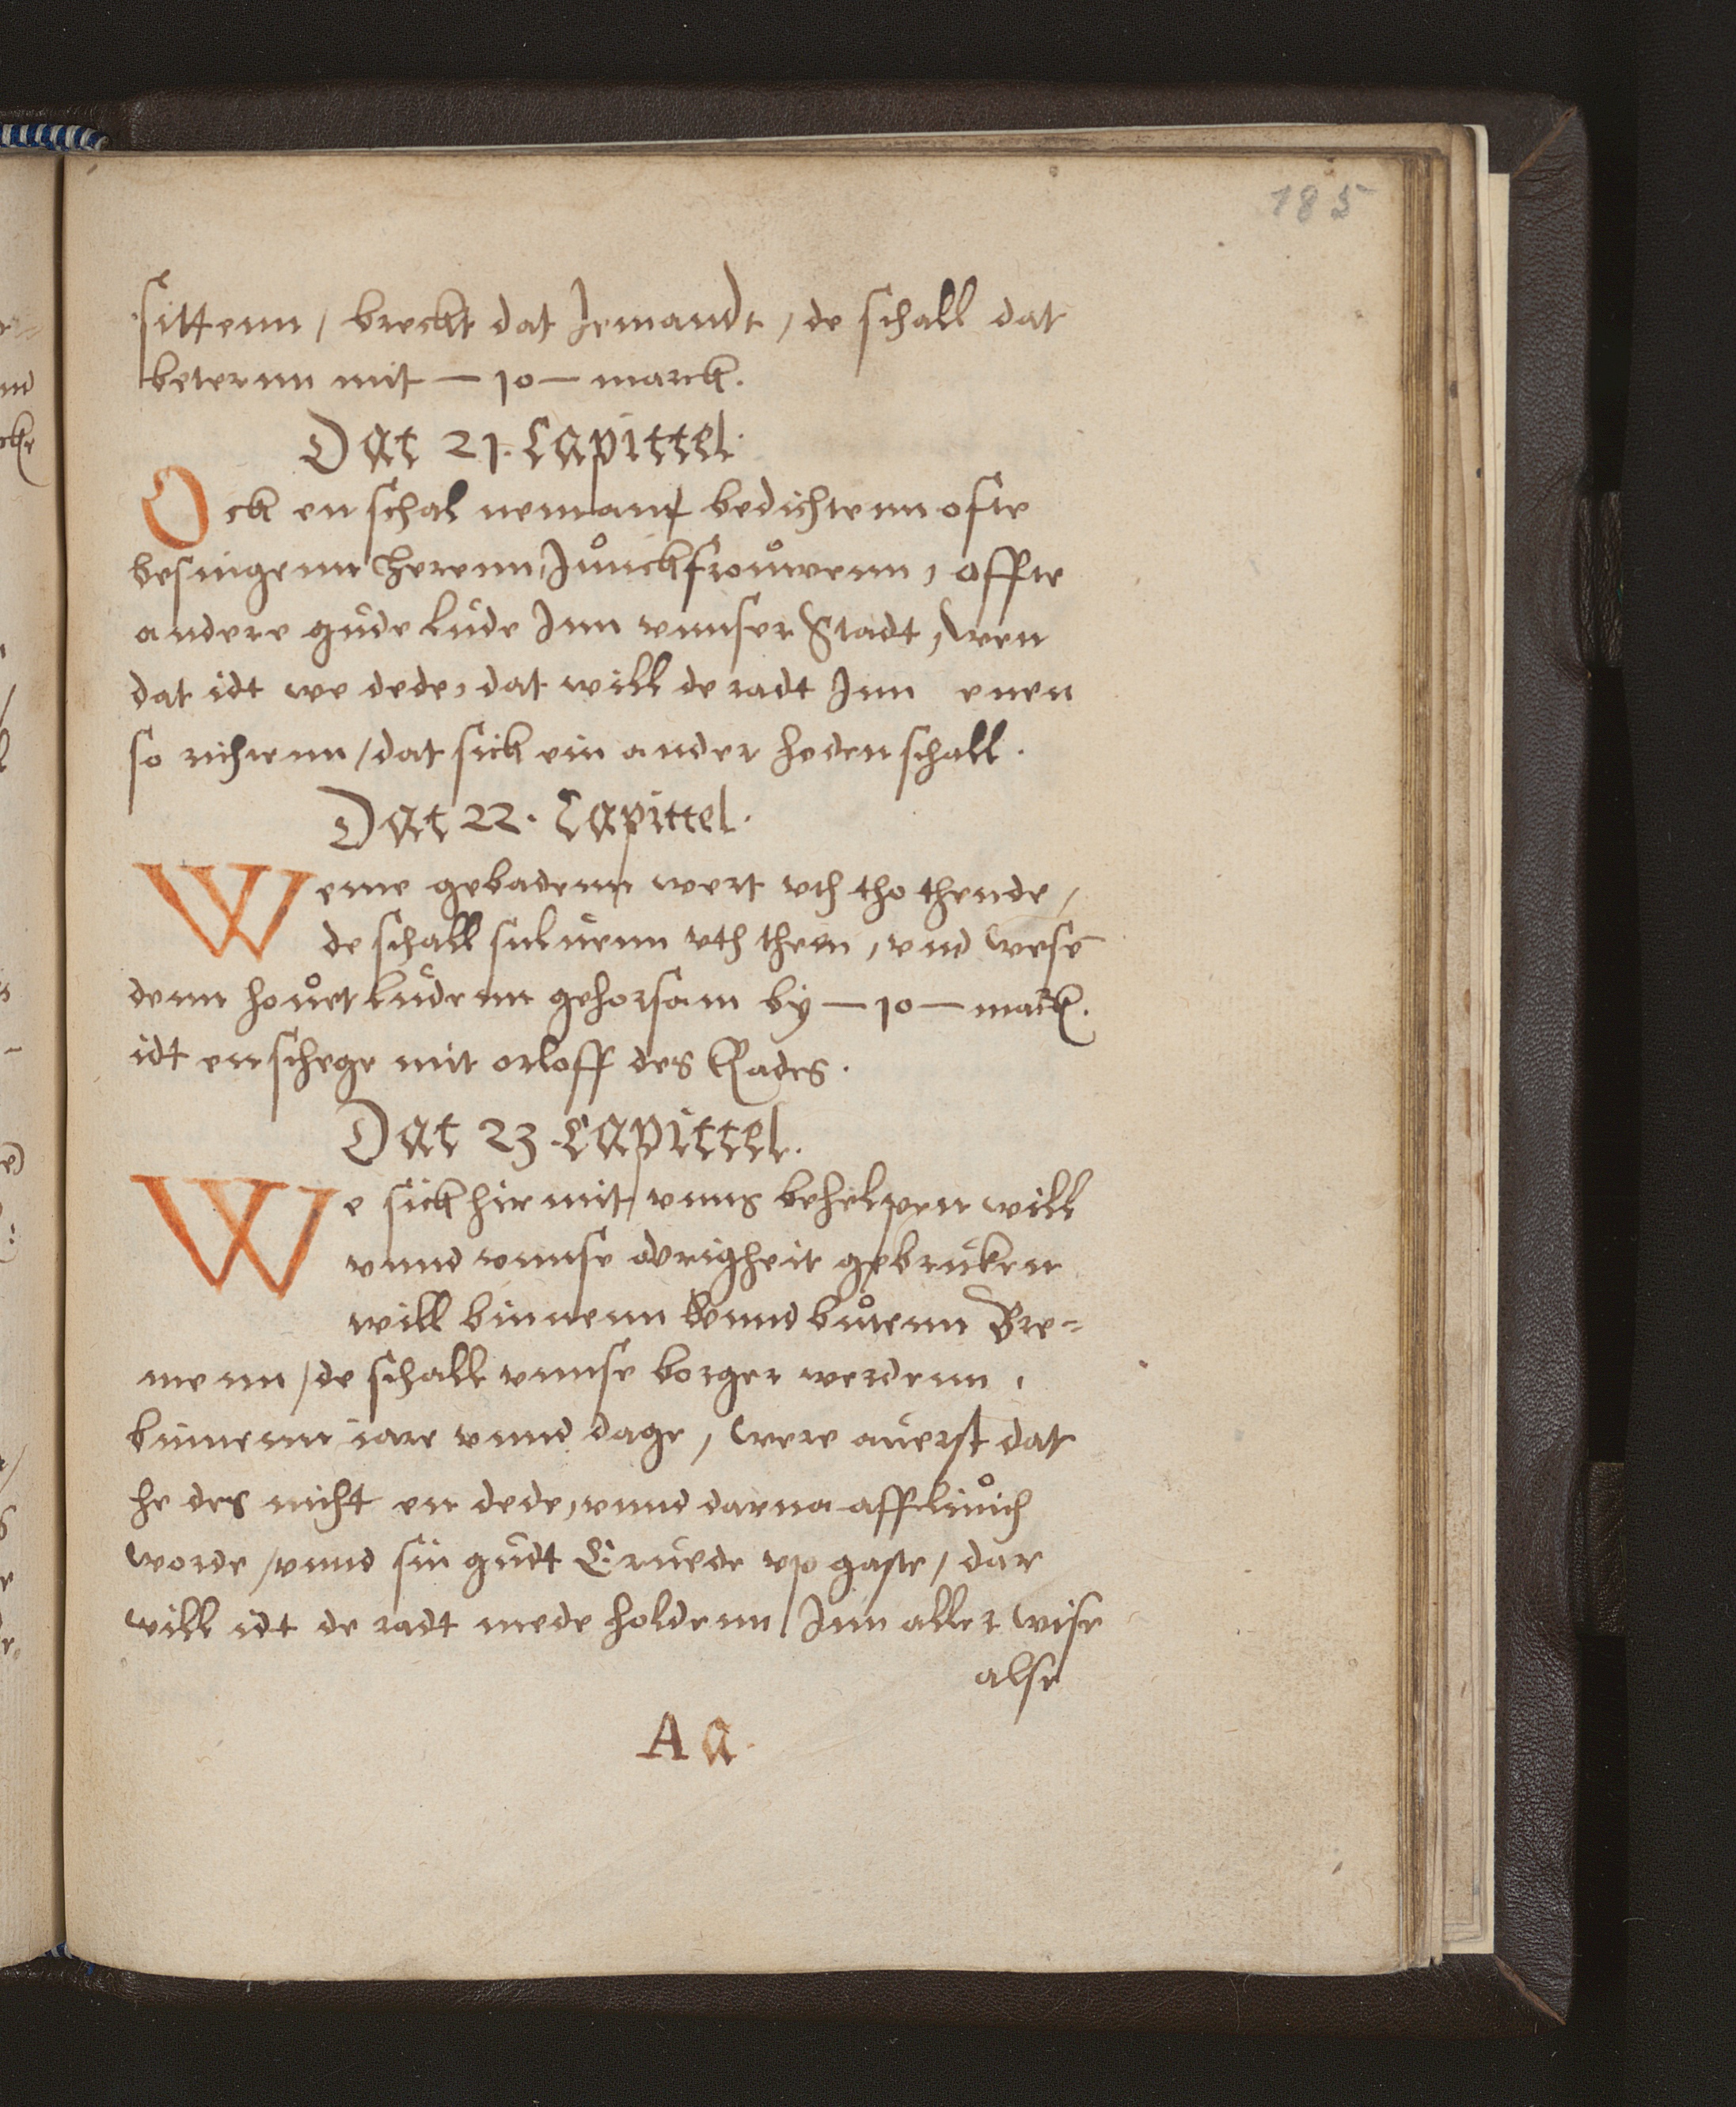 185
sittenn / breckt dat Jemandt / de schall dat
beterenn mit — 10 — marck.
Dat 21. Capittel.
Ock en schal nemant bedichtenn ofte
besingenn herenn, Ju̇nckfrou̇wenn, offte
andere gude lude Jnn vnnser Stadt, Wen
dat idt we dede, dat will de radt Jnn enen
so richtenn / dat sick ein ander hoden schall.
Dat 22. Capittel.
Weme gebadenn wert vth tho thende /
de schall suluenn vth theen, vnd wesē
denn hou̇et ludenn gehorsam by — 10 — marck.
idt en schege mit orloff des Rades.
Dat 23. Capittel.
We sick hir mit vnns behelpen will
vnnd vnnse aurigheit gebruken
will binnenn vnnd bu̇tenn Bre=
menn / de schall vnnse borger werdenn,
binnenn iare vnnd dage, Were auerst dat
he des nicht en dede, vnnd darna affliu̇ich
worde / vnnd sin gudt Eruede vp gaste / dar
will idt de radt mede holdenn Jnn aller wise
alse
A a.